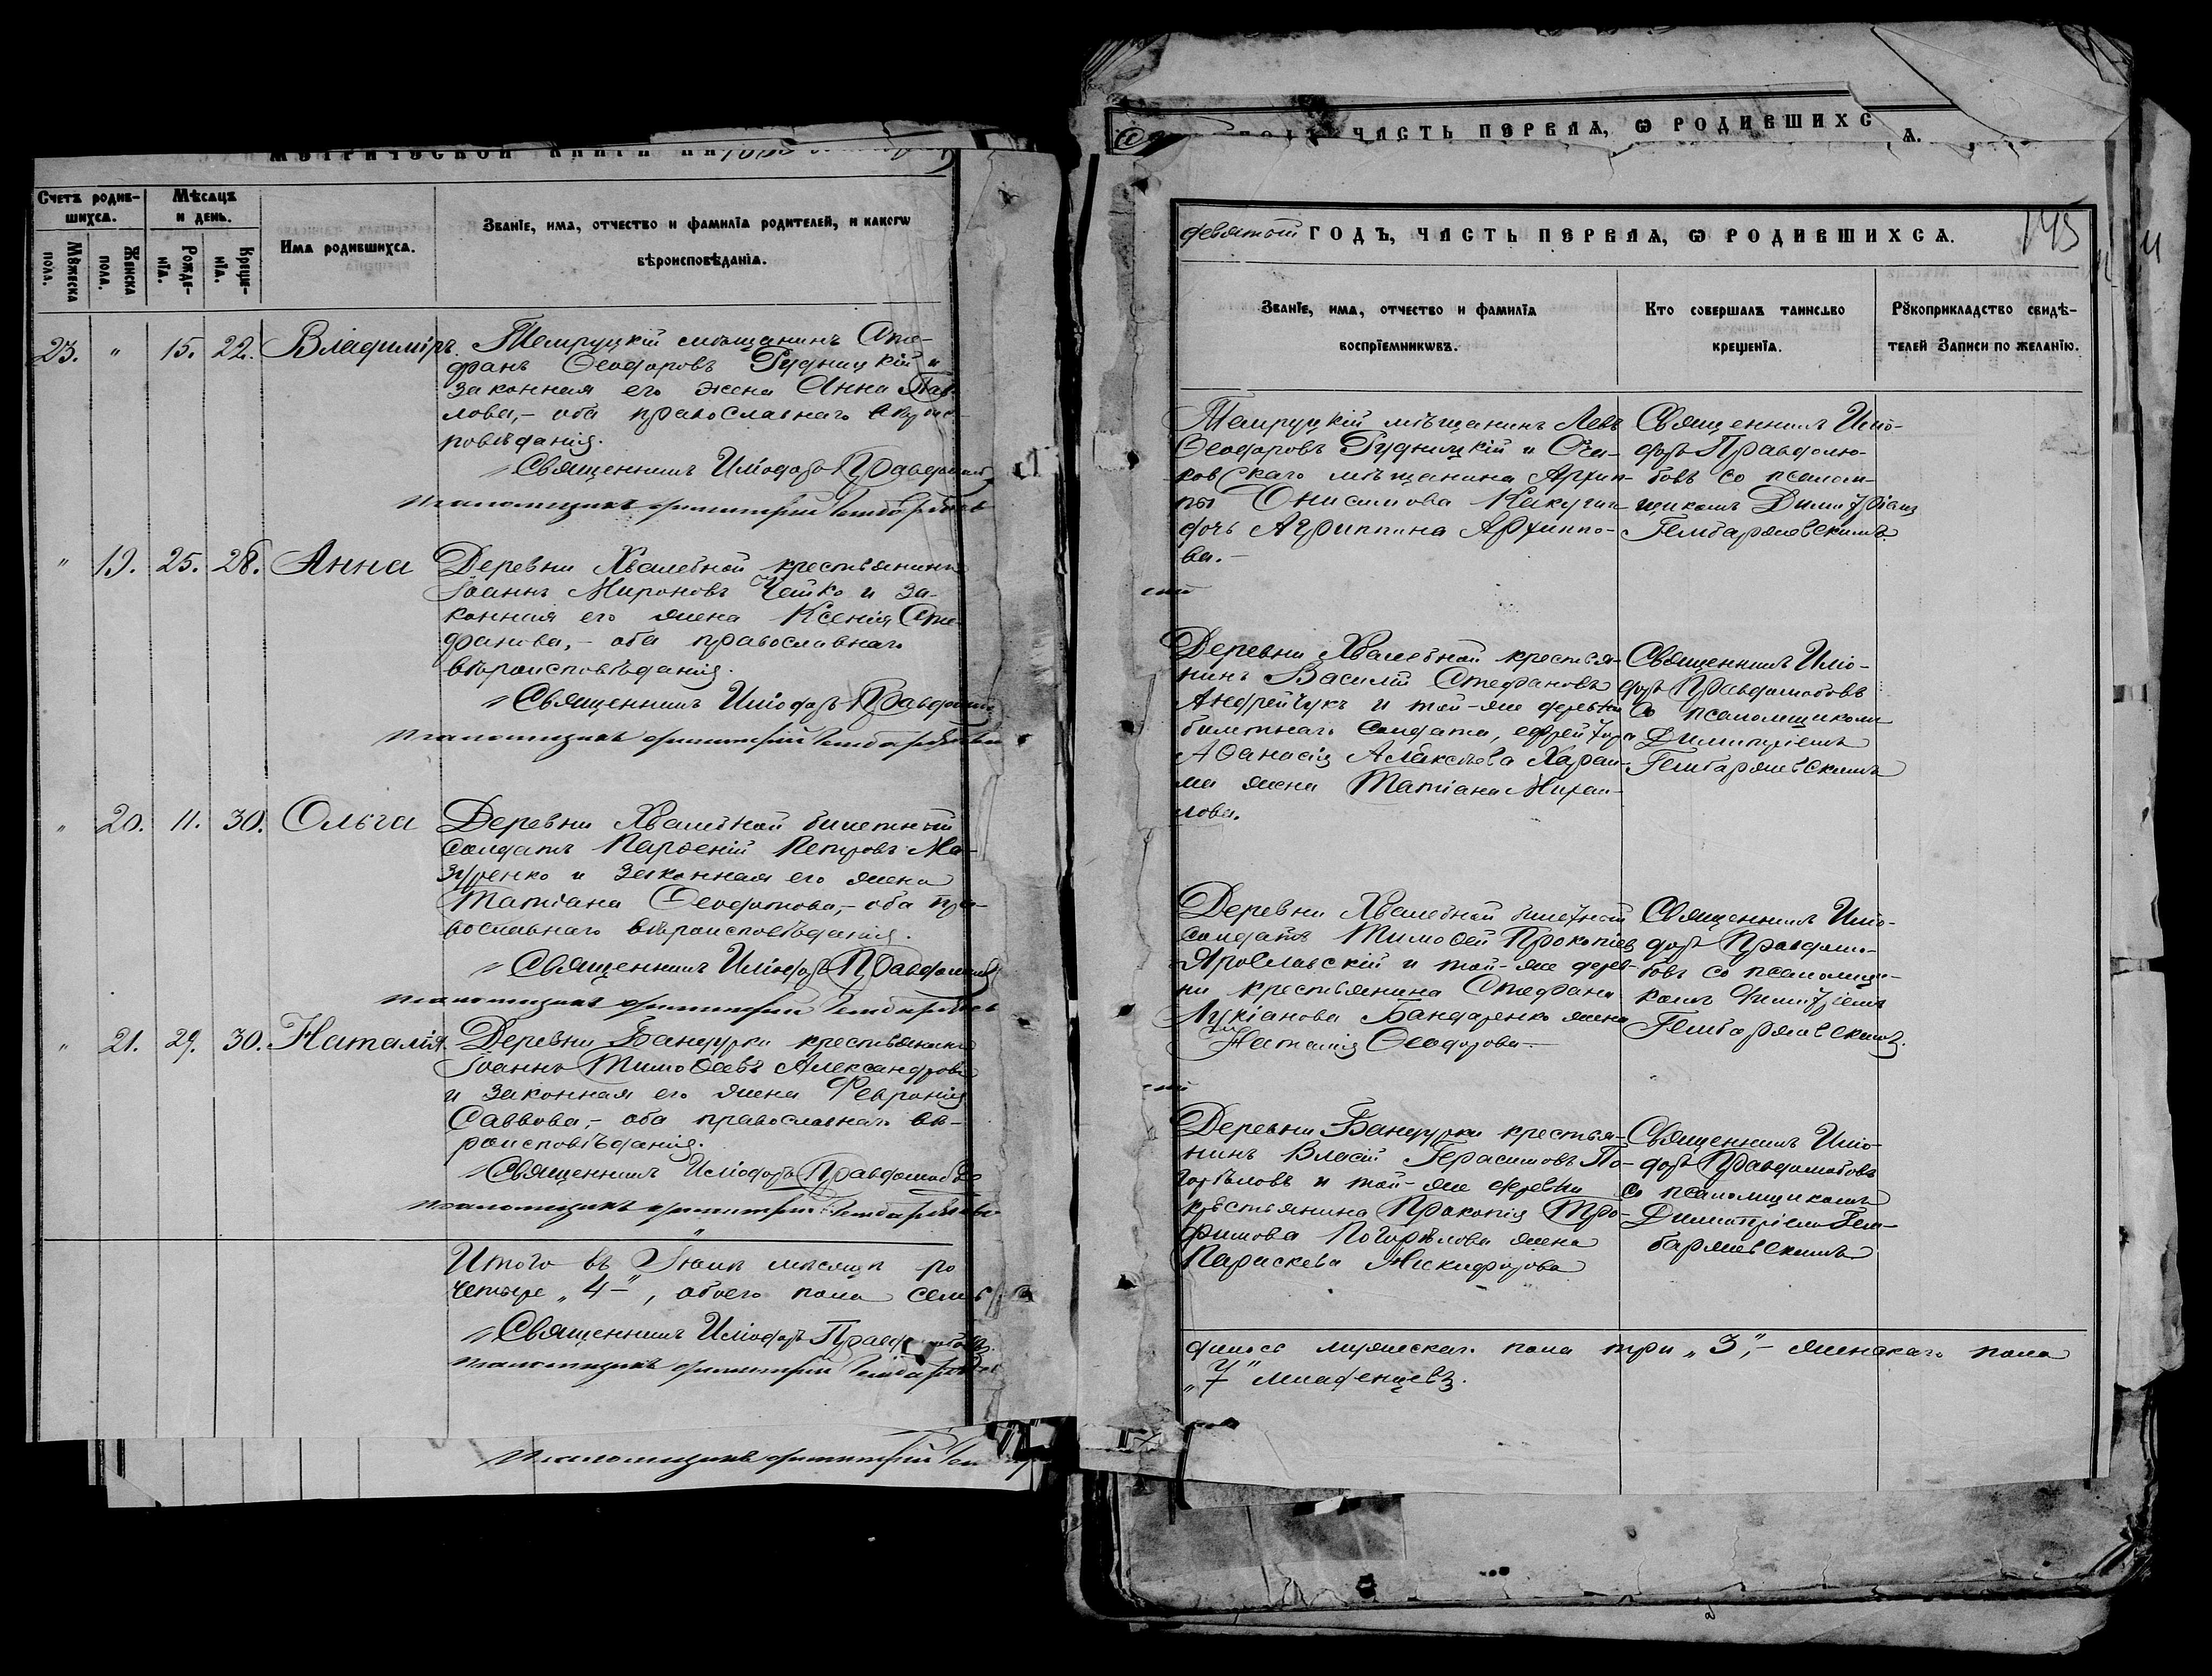 МЕТРИЧЕСКОЙ КНИГИ НА
Счетъ родив-
шихсѧ.
Мѣсѧцъ
и день.
Мꙋжеска
пола.
Женска
пола.
Рожде-
нїѧ.
Креще-
нїѧ.
Имѧ родившихсѧ.
Званїе, имѧ, отчество и фамилїѧ родителей, и какогѡ
вѣроисповѣданїѧ.
23. " 15. 22. Владиміръ.
Темруцкій мѣщанинъ Сте-
фанъ Ѳеодоровъ Рудницкій и
законная его жена Анна Пав-
лова,- оба православнаго вѣрois-
повѣданія.
Священникъ Иліодоръ
Псаломщикъ Димитрій
" 19. 25. 28. Анна
Деревни Хвалебной крестьянинъ
Іоаннъ Мироновъ Чейко и за-
конная его жена Ксенія Сте-
фанова,- оба православнаго
вѣроисповѣданія.
Священникъ Иліодоръ
Псаломщикъ Димитрій
" 20. 11. 30. Ольга
Деревни Хвалебной билетный
солдатъ Парѳеній Петровъ Ма-
зуренко и законная его жена
Татіана Ѳеодотова,- оба пра-
вославнаго вѣроисповѣданія.
Священникъ Иліодоръ
Псаломщикъ Димитрій
" 21. 29. 30. Наталія.
Деревни Бандурки крестьянинъ
Іоаннъ Тимоѳеевъ Александровъ
и законная его жена Февронія
Саввова,- оба православнаго вѣ-
роисповѣданія.
Священникъ Иліодоръ Правдолюбовъ
Псаломщикъ Димитрій
Итого въ мѣсяцѣ ро
четыре „4-", обоего пола семь
Священникъ Иліодоръ Правдолюбовъ.
Псаломщикъ Димитрій
Псаломщикъ Димитрій
ЧАСТЬ ПЕРВАѦ, Ѡ РОДИВШИХС
Ѧ.
девятый ГОДЪ, ЧАСТЬ ПЕРВАѦ, Ѡ РОДИВШИХСѦ.
145
Званїе, имѧ, отчество и фамилїѧ
воспрїемникѡвъ.
Кто совершалъ таинство
крещенїѧ.
Рꙋкоприкладство свидѣ-
телей записи по желанїю.
Темруцкій мѣщанинъ Левъ
Ѳеодоровъ Рудницкій и Оча-
ковскаго мѣщанина Архип-
пы Онисимова
дочь Агриппина Архиппо-
ва.-
Священникъ Иліо-
доръ Правдолю-
бовъ со псалом-
щикомъ Димитріемъ
Гембаржевскимъ.
Деревни Хвалебной крестья-
нинъ Василій Стефановъ
Андрейчукъ и той-же деревни
билетнаго солдата, ефрейтора
Аѳанасія Алексѣева
жена Татіана Михаи-
лова.
Священникъ Иліо-
доръ Правдолюбовъ
со псаломщикомъ
Димитріемъ
Гембаржевскимъ
Деревни Хвалебной билетный
солдатъ Тимоѳей Прокопіевъ
Ярославскій и той-же дерев-
ни крестьянина Стефана
Лукіанова Бандаренко жена
Наталія Ѳеодорова-
Священникъ Иліо-
доръ Правдолю-
бовъ со псаломщи-
комъ Димитріемъ
Гембаржевскимъ.
Деревни Бандурки крестья-
нинъ Власій Герасимовъ По-
горѣловъ и той-же деревни
крестьянина Прокопія Тро-
фимова Погорѣлова жена
Параскева Никифорова
Священникъ Иліо-
доръ Правдолюбовъ
со псаломщикомъ
Димитріемъ Гем-
баржевскимъ
дилось мужескаго пола три „3",- женскаго пола
„7" младенцевъ.